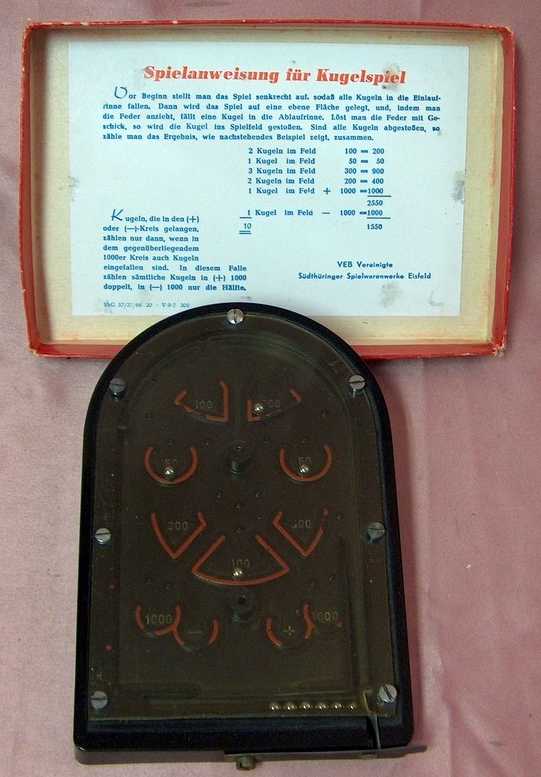 Spielanweisung für Kugelspiel
Vor Beginn stellt man das Spiel senkrecht auf, sodaß alle Kugeln in die Einlauf-
rinne fallen. Dann wird das Spiel auf eine ebene Fläche gelegt, und, indem man
die Feder anzieht, fällt eine Kugel in die Ablaufrinne. Löst man die Feder mit Ge-
schick, so wird die Kugel ins Spielfeld gestoßen. Sind alle Kugeln abgestoßen, so
zähle man das Ergebnis, wie nachstehendes Beispiel zeigt, zusammen.
2 Kugeln im Feld 100 = 200
1 Kugel im Feld 50 = 50
3 Kugeln im Feld 300 = 900
2 Kugeln im Feld 200 = 400
1 Kugel im Feld + 1000 = 1000
2550
1 Kugel im Feld — 1000 = 1000
10 1550
Kugeln, die in den (+)
oder (—)-Kreis gelangen,
zählen nur dann, wenn in
dem gegenüberliegendem
1000er Kreis auch Kugeln
eingefallen sind. In diesem Falle
zählen sämtliche Kugeln in (+) 1000
doppelt, in (—) 1000 nur die Hälfte.
VEB Vereinigte
Südthüringer Spielwarenwerke Eisfeld
100
50 50
300
100
1000 — + 1000